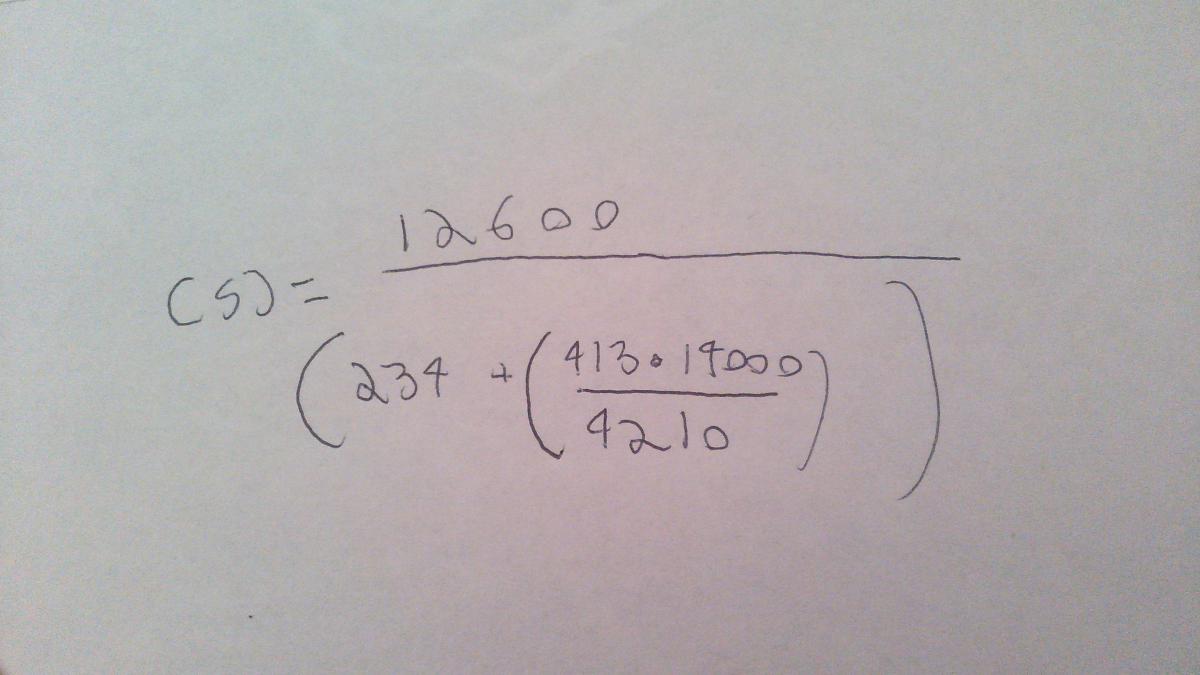 12600
(S) =
(234 + (413 • 14000
4210))